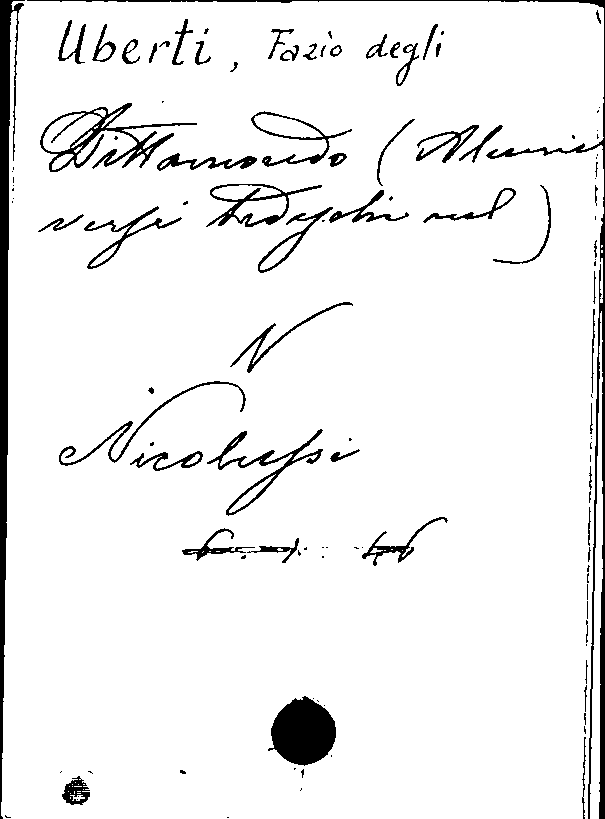 Uberti, Fazio degli
Dittamondo (Alcuni
versi
N
Nicolussi